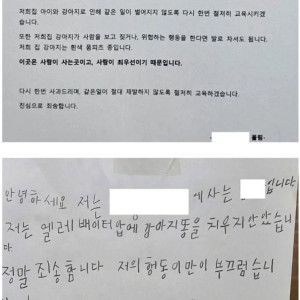 저희집 아이와 강아지로 인해 같은 일이 벌어지지 않도록 다시 한번 철저히 교육시키겠
습니다.
또한 저희 강아지가 사람을 보고 짖거나, 위협하는 행동을 한다면 발로 차셔도 됩니다.
저희 집 강아지는 흰색 폼피츠 종입니다.
이곳은 사람이 사는곳이고, 사람이 최우선이기 때문입니다.
다시 한번 사과드리며, 같은일이 절대 재발하지 않도록 철저히 교육하겠습니다.
진심으로 죄송합니다.
올림-
안녕하세요 저는 에 사는 입니다
저는 엘레베이터 앞에 강아지똥을 치우지 안았습니
다
정말 죄송합니다 저의 행동이 많이 부끄럽습니